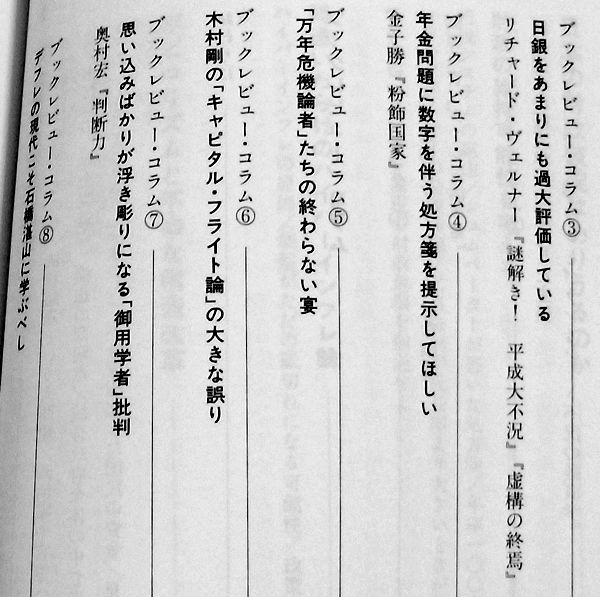 ブックレビュー・コラム③
日銀をあまりにも過大評価している
リチャード・ヴェルナー『謎解き！　平成大不況』『虚構の終焉』
ブックレビュー・コラム④
年金問題に数字を伴う処方箋を提示してほしい
金子勝『粉飾国家』
ブックレビュー・コラム⑤
「万年危機論者」たちの終わらない宴
ブックレビュー・コラム⑥
木村剛の「キャピタル・フライト論」の大きな誤り
ブックレビュー・コラム⑦
思い込みばかりが浮き彫りになる「御用学者」批判
奥村宏『判断力』
ブックレビュー・コラム⑧
デフレの現代こそ石橋湛山に学ぶべし